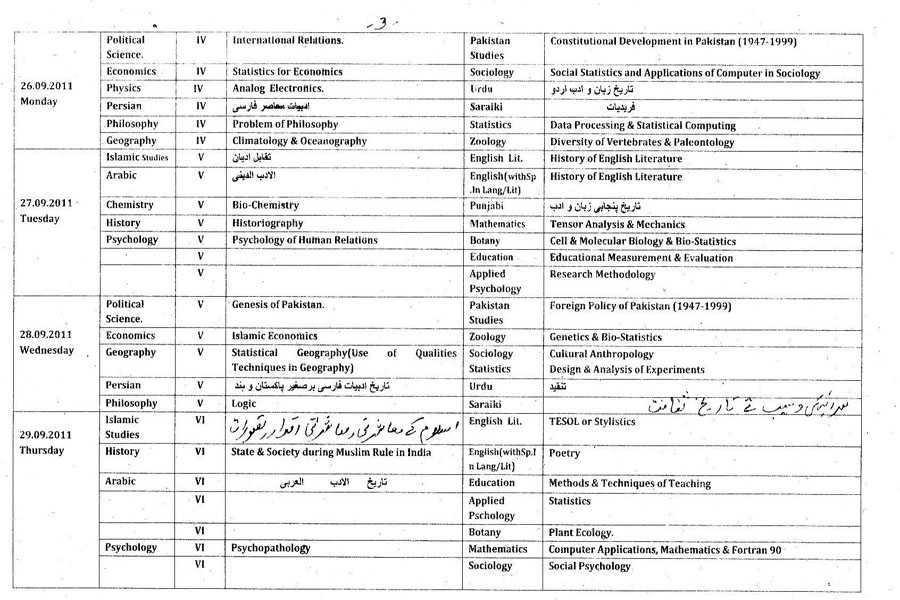 -3-
Political Science. IV International Relations. Pakistan Studies Constitutional Development in Pakistan (1947-1999)
26.09.2011 Monday
Economics IV Statistics for Economics Sociology Social Statistics and Applications of Computer in Sociology
Physics IV Analog Electronics. Urdu تاریخ زبان و ادب اردو
Persian IV ادبیات معاصر فارسی Saraiki فریدیات
Philosophy IV Problem of Philosophy Statistics Data Processing & Statistical Computing
Geography IV Climatology & Oceanography Zoology Diversity of Vertebrates & Paleontology
27.09.2011 Tuesday
Islamic Studies V تقابل ادیان English Lit. History of English Literature
Arabic V الادب الدینی English(withSp.In Lang/Lit) History of English Literature
Chemistry V Bio-Chemistry Punjabi تاریخ پنجابی زبان و ادب
History V Historiography Mathematics Tensor Analysis & Mechanics
Psychology V Psychology of Human Relations Botany Cell & Molecular Biology & Bio-Statistics
V Education Educational Measurement & Evaluation
V Applied Psychology Research Methodology
28.09.2011 Wednesday
Political Science. V Genesis of Pakistan. Pakistan Studies Foreign Policy of Pakistan (1947-1999)
Economics V Islamic Economics Zoology Genetics & Bio-Statistics
Geography V Statistical Geography(Use of Qualities Techniques in Geography) Sociology Cultural Anthropology
Statistics Design & Analysis of Experiments
Persian V تاریخ ادبیات فارسی برصغیر پاکستان و ہند Urdu تنقید
Philosophy V Logic Saraiki سرائیکی وسیب تے تاریخ ثقافت
29.09.2011 Thursday
Islamic Studies VI اسلام کے معاشرتی اقدار تصورات English Lit. TESOL or Stylistics
History VI State & Society during Muslim Rule in India English(withSp.In Lang/Lit) Poetry
Arabic VI تاریخ الادب العربی Education Methods & Techniques of Teaching
VI Applied Pschology Statistics
VI Botany Plant Ecology.
Psychology VI Psychopathology Mathematics Computer Applications, Mathematics & Fortran 90
VI Sociology Social Psychology